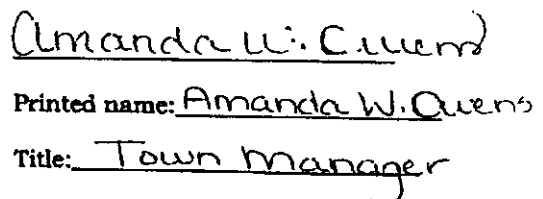 Amanda W. Owens
Printed name: Amanda W. Owens
Title: Town Manager